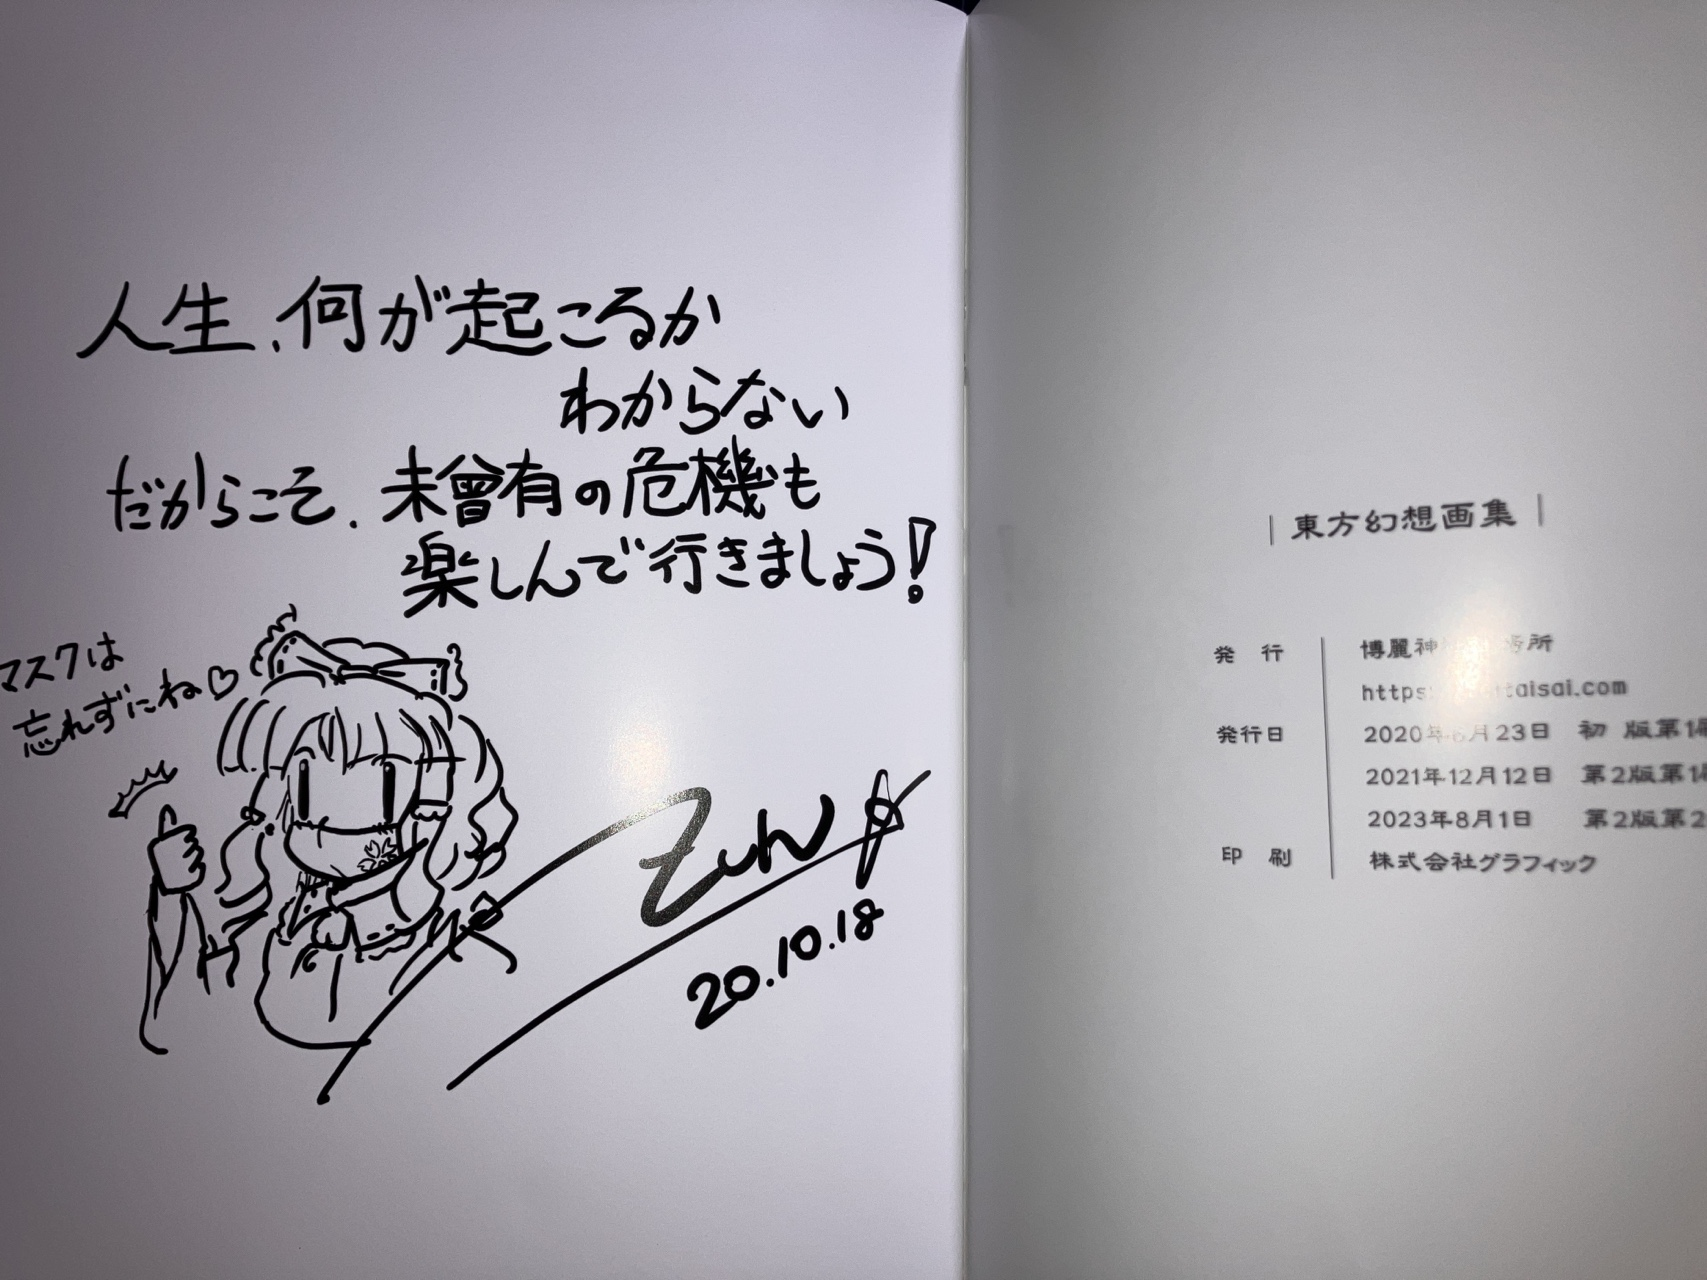 人生、何が起こるか
わからない
だからこそ、未曾有の危機も
楽しんで行きましょう!
マスクは
忘れずにね♡
ZUN
20.10.18
東方幻想画集
発 行
博麗神
所
https
taisai.com
発行日
2020年 月23日 初 版第1
2021年12月12日 第2版第1
2023年8月1日 第2版第2
印 刷
株式会社グラフィック